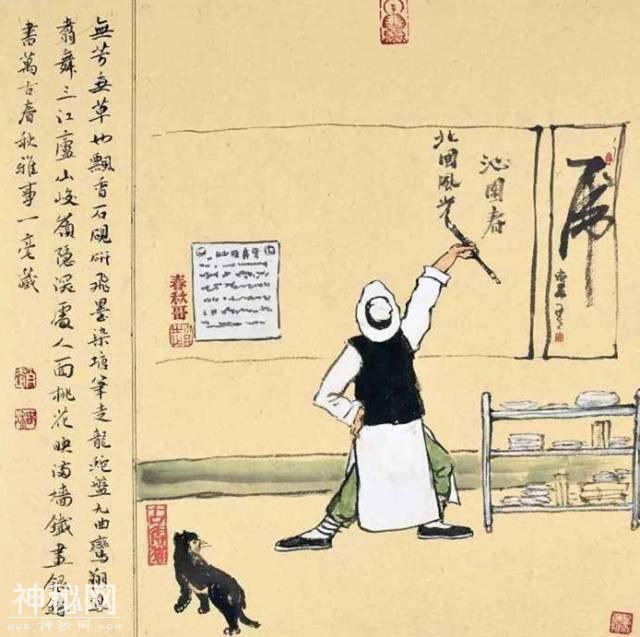 虎
沁園春
北國風光
春秋哥
無芳無草也飄香石硯研飛墨染塘筆走龍蛇盤九曲鸞翔鳳
翥舞三江廬山峻嶺隱深處人面桃花映滿牆鐵畫銀鉤
書萬古春秋雅事一毫藏
神秘网